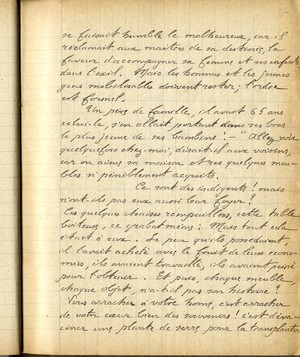 se faisait humble le malheureux, car il
réclamait aux maîtres de sa destinée, la
faveur d'accompagner sa femme et ses enfants
dans l'exil. Mais les hommes et les jeunes
gens mobilisables doivent rester; l'ordre
est formel.
Un père de famille, il avait 65 ans
celui-là, s'en allait portant dans ses bras
le plus jeune de ses bambins. — "Allez voir
quelquefois chez-moi, disait-il aux voisins,
car on aime sa maison et ses quelques meu-
bles si péniblement acquis.
Ce sont des indigents! mais
n'ont-ils pas eux aussi leur foyer?
Ces quelques chaises rempaillées, cette table
boiteuse, ce grabat même: Mais tout cela
était à eux. Le peu qu'ils possédaient,
il l'avait acheté avec le fruit de leurs écono-
mies, ils avaient travaillé, ils avaient peiné
pour l'obtenir. Et puis chaque meuble,
chaque objet, n'a-t-il pas son histoire?
Vous arracher à votre home, c'est arracher
de votre cœur bien des souvenirs! c'est déra-
ciner une plante de serre, pour la transplanter